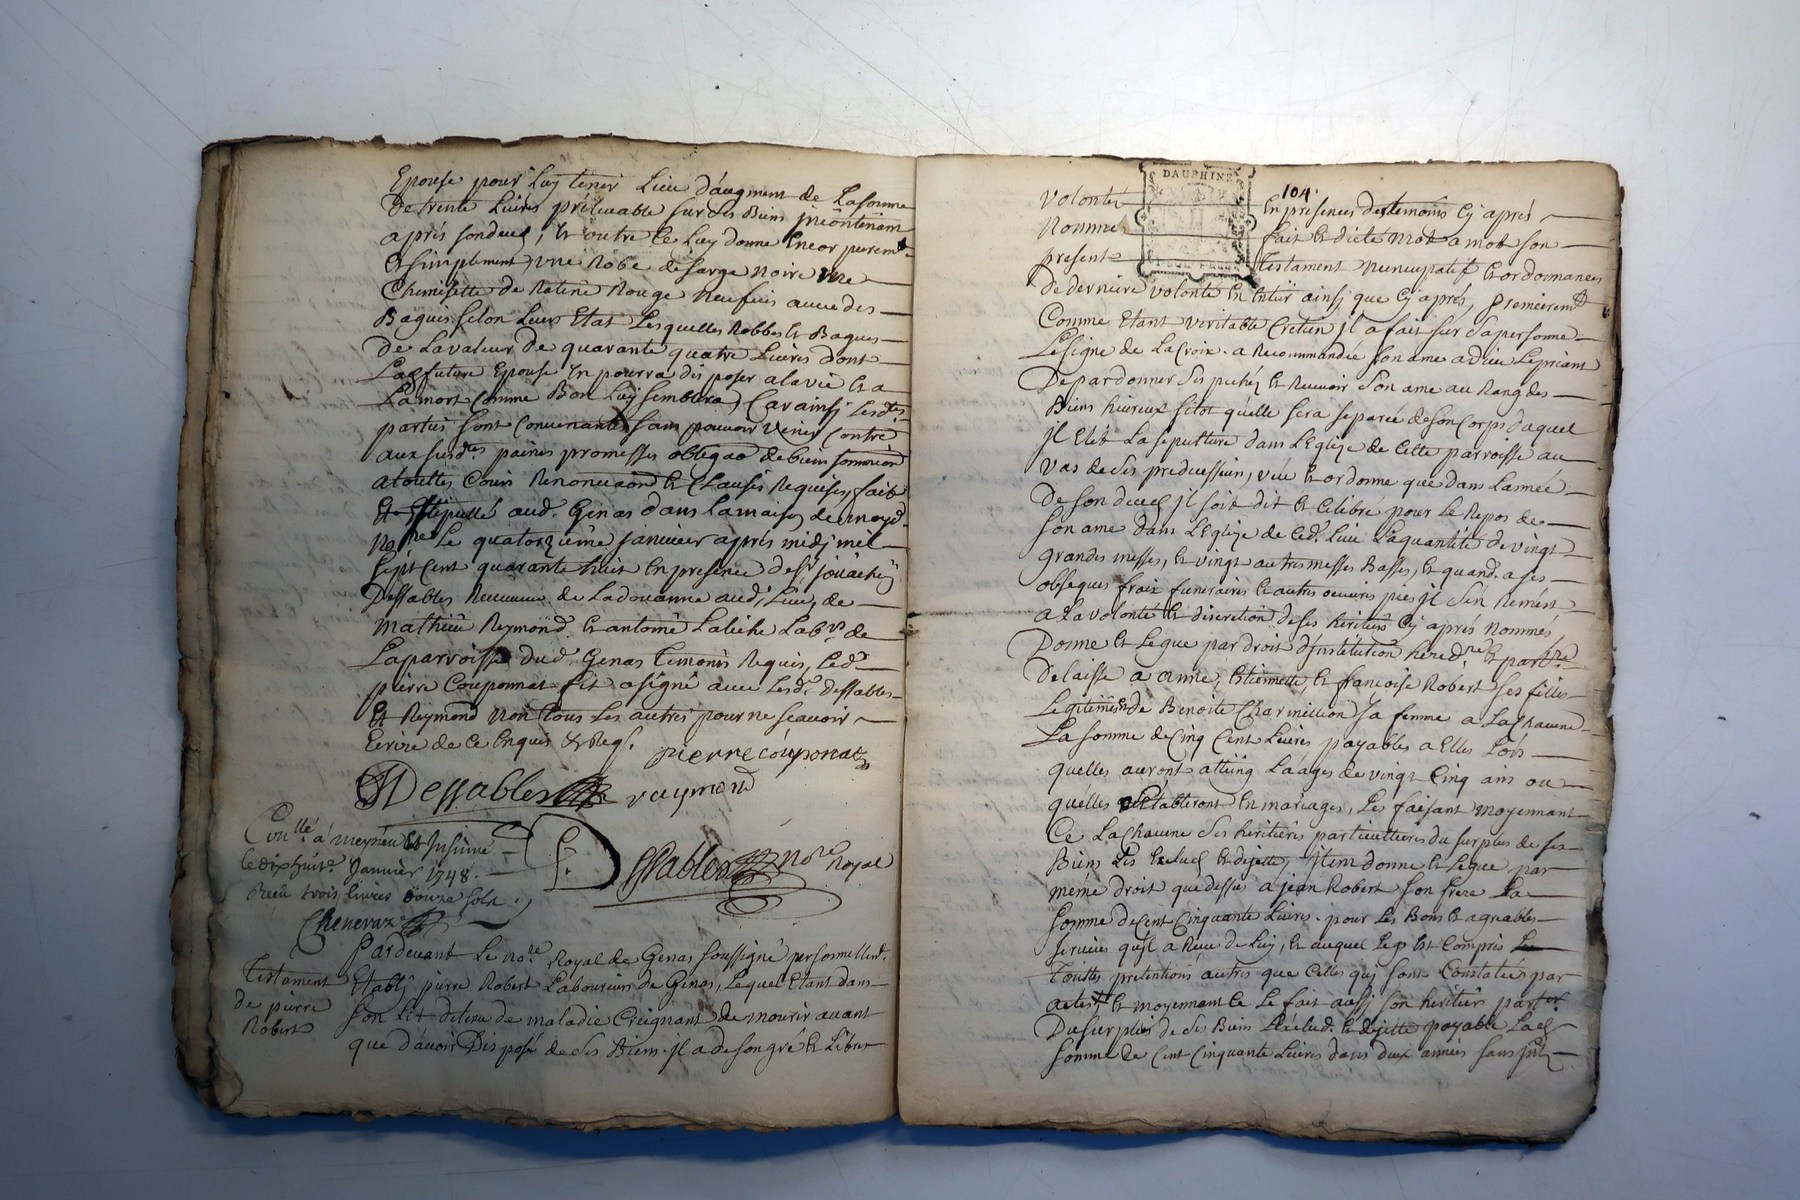 Epouse pour luy tenir lieu d'augment de la somme
de trente livres prélevable sur ses Biens incontinant
après son deces, et outre ce luy donne encor purem.t
et simplement, une Robe de sarge noire une
Chemisette de Ratine Rouge neufuis avec des
Bagues selon leur Etat lesquelles Robbes et Bagues
de la valeur de quarante quatre livres dont
lad. future Epouse en pourra disposer a la vie et a
la mort comme Bon luy semblera, Car ainsi lesd.tes
parties sont convenantes sans pouvoir venir contre
aux susd.tes paines promesses obligao de biens
a touttes Cours Renonciaons et Clauses Requises, fait
et stipullé aud. Genas dans la maison de moyd.
No.re le quatorzième janvier après midj mil
sept cent quarante huit en presence de s.r
Dessables Receveur de la doüanne aud. lieu, de
Mathieu Reymond et antoine Labiche Lab.rs de
la parroisse dud. Genas Temoins Requis, led.
pierre Couponnat fit a signé avec lesd. dessables
et Reymond non tous les autres pour ne scavoir
Ecrire de ce Enquis et Reqs.
pierre couponat
Dessables reymond
Con.llé à meysieu et Insinué
le dix huit.e Janvier 1748.
Receu trois livres douze sols
Chenevaz
Dessables No.re Royal
Pardevant le no.re Royal de Genas soussigné personnellem.t
Testament
de pierre
Robert
Etablj pierre Robert Laboureur de Genas, Lequel Etant dans
son lit detenu de maladie Creignant de mourir avant
que d'avoir Disposé de ses Biens. jl a de son gré et libre
DAUPHINE
104.
volonté En presences des temoins Cy après
Nommés fait et dicté mot a mot son
present Testament Nuncupatif et ordonnances
de derniere volonté En Entier ainsj que Cy après, premierem.t
Comme Etant veritable Cretien jl a fait sur sa personne
le signe de la Croix. a Recommandée son ame a dieu le priant
De pardonner ses pechéz et Recevoir son ame au Rang des
Biens heureux sitot qu'elle sera separée de son Corps duquel
jl Elit la sepulture dans l'Eglize de Cette parroisse au
vas de ses predecesseurs, veut et ordonne que dans l'année
de son deces jl soit dit et Celebré pour le Repos de
son ame dans l'Eglize de Ced. lieu la quantité de vingt
grandes messes, et vingt autres messes Basses, et quand a ses
obseques fraix funeraires et autres oeuvres pies jl s'en Remest
a la volonté et discretion de ses heritiers Cy après Nommés
Donne et Legue par droit d'jnstitution hered.re et part.re
delaisse a anne, Estiennette, et françoise Robert ses filles
legitimes de Benoite Charmillion sa femme a la chacune
la somme de Cinq Cent Livres payables a Elles lors
quelles auront atting l'aages de vingt Cinq ans ou
qu'elles s'Etabliront En mariages, les faisant moyennant
Ce la Chacune ses heritieres particullieres du surplus de ses
Biens les Exclud et dejette, jtem donne et Legue par
même droit que dessus a jean Robert son frere la
somme de Cent Cinquante Livres. pour les Bons et agreables
services qu'jl a Receu de luy, et auquel Legs Est Compris
Touttes pretentions autres que Celles quj sont Constatées par
actes, et moyennant Ce le fait aussj son heritier part.er
Du surplus de ses Biens l'Exclud et dejette payable lad.
somme de Cent Cinquante Livres dans deux années sans